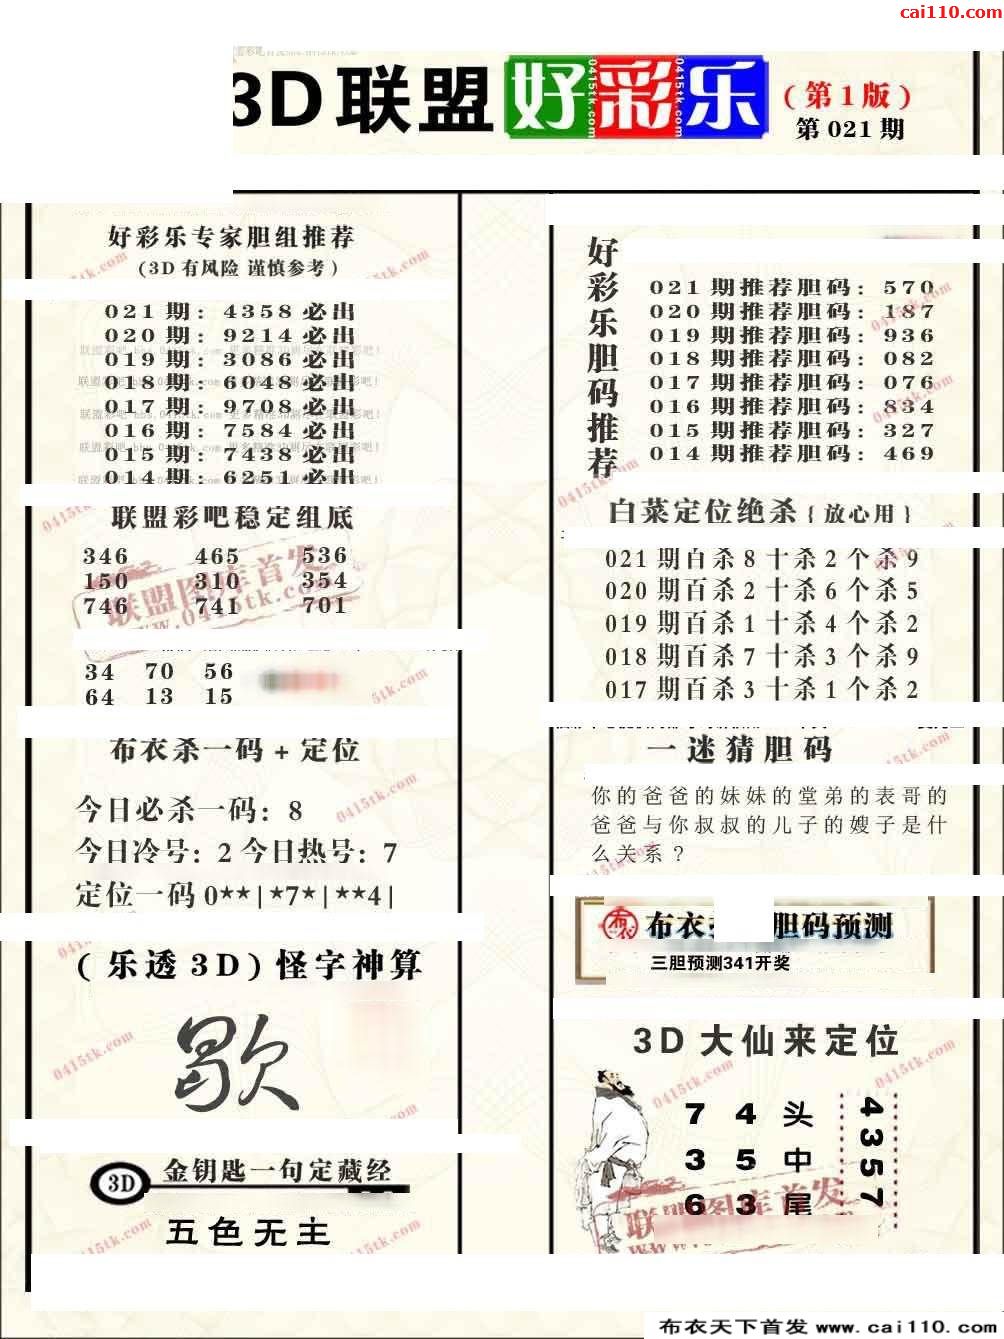 cai110.com
3D联盟好彩乐
(第1版)
第021期
好彩乐专家胆组推荐
(3D有风险 谨慎参考)
021期: 4358必出
020期: 9214必出
019期: 3086必出
018期: 6048必出
017期: 9708必出
016期: 7584必出
015期: 7438必出
014期: 6251必出
联盟彩吧稳定组底
346 465 536
150 310 354
746 741 701
34 70 56
64 13 15
布衣杀一码+定位
今日必杀一码: 8
今日冷号: 2 今日热号: 7
定位一码 0**|*7*|**4|
(乐透3D)怪字神算
歇
3D 金钥匙一句定藏经
五色无主
好彩乐胆码推荐
021期推荐胆码: 570
020期推荐胆码: 187
019期推荐胆码: 936
018期推荐胆码: 082
017期推荐胆码: 076
016期推荐胆码: 834
015期推荐胆码: 327
014期推荐胆码: 469
白菜定位绝杀{放心用}
021期百杀8十杀2个杀9
020期百杀2十杀6个杀5
019期百杀1十杀4个杀2
018期百杀7十杀3个杀9
017期百杀3十杀1个杀2
一迷猜胆码
你的爸爸的妹妹的堂弟的表哥的
爸爸与你叔叔的儿子的嫂子是什
么关系?
布衣 胆码预测
三胆预测341开奖
3D大仙来定位
7 4 头
3 5 中
6 3 尾
4357
联盟图库首发
www.0415tk.com
0415tk.com
布衣天下首发 www.cai110.com